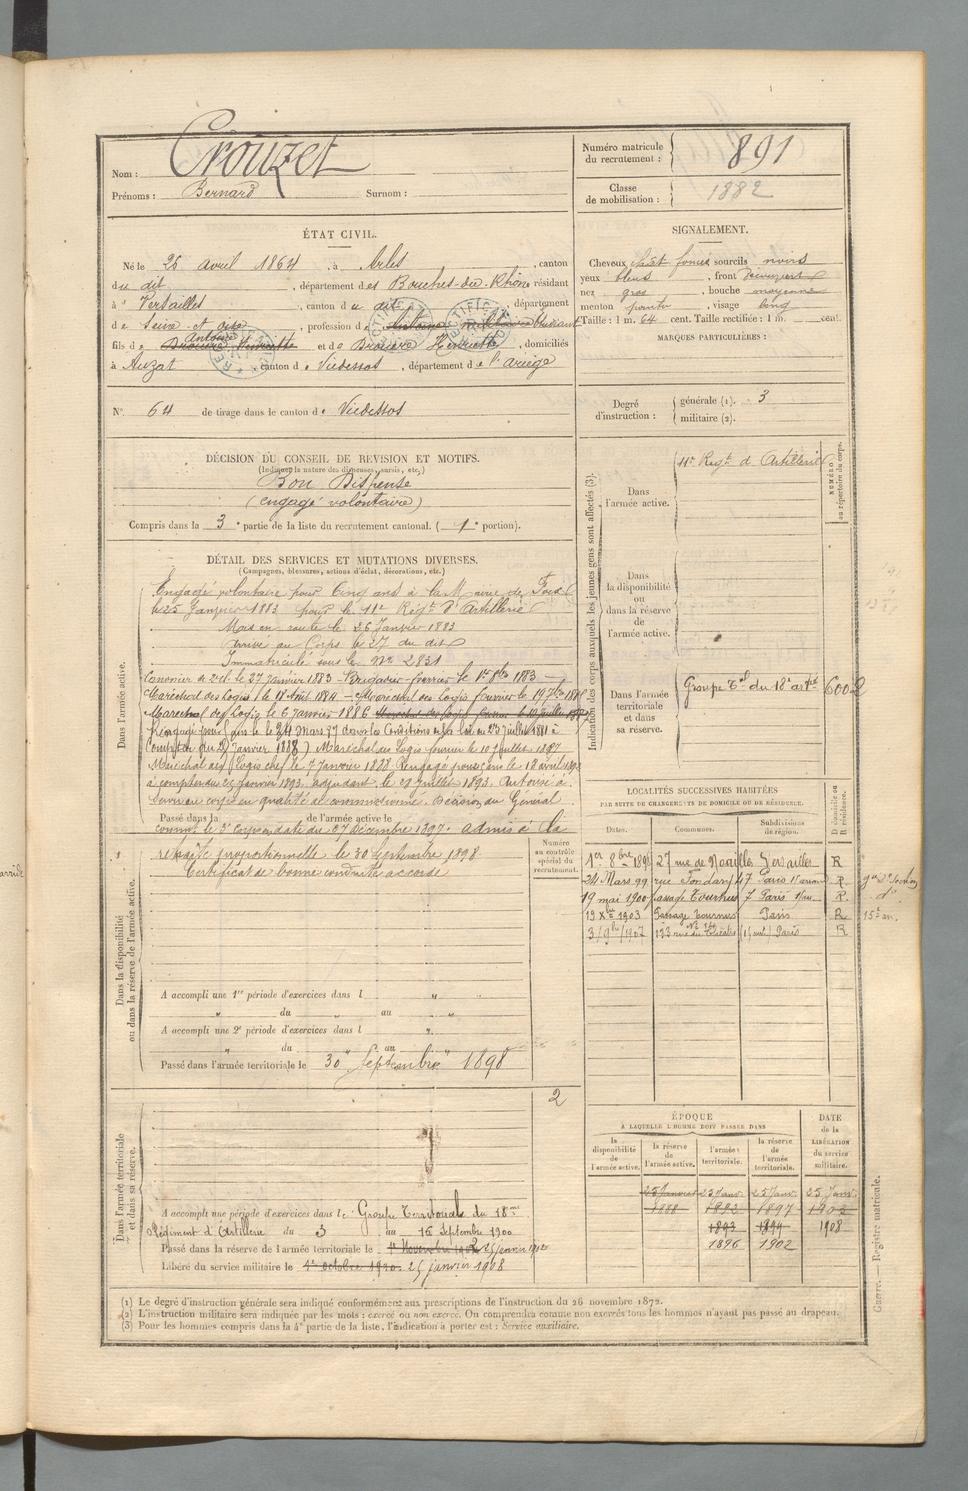 Nom : Crouzet
Prénoms : Bernard Surnom :
Numéro matricule
du recrutement : 891
Classe
de mobilisation : 1882
ÉTAT CIVIL.
Né le 26 avril 1864, à Arles, canton
du dit, département des Bouches-du-Rhône résidant
à Versailles, canton du dit, département
de Seine et oise, profession d
fils de Antoine et de Brouère Henriette, domiciliés
à Auzat, canton de Vicdessos, département de l'ariège
N° 64 de tirage dans le canton de Vicdessos
SIGNALEMENT.
Cheveux chât foncé sourcils noirs
yeux bleus, front découvert
nez gros, bouche moyenne
menton pointu, visage long
Taille : 1 m. 64 cent. Taille rectifiée : 1 m. cent.
MARQUES PARTICULIÈRES :
Degré
d'instruction :
générale (1). 3
militaire (2).
DÉCISION DU CONSEIL DE REVISION ET MOTIFS.
(Indiquer la nature des dispenses, sursis, etc.)
Bon Dispensé
(engagé volontaire)
Compris dans la 3e partie de la liste du recrutement cantonal. (1e portion).
DÉTAIL DES SERVICES ET MUTATIONS DIVERSES.
(Campagnes, blessures, actions d'éclat, décorations, etc.)
Dans l'armée active.
Engagé volontaire pour Cinq ans à la Mairie de Foix
le 25 Janvier 1883 pour le 11e Régt d'Artillerie
Mis en route le 26 Janvier 1883
Arrivé au Corps le 27 du dit
Immatriculé sous le No 2831
Canonier de 2e cl. le 27 janvier 1883 - Brigadier fourrier le 1er 8bre 1883 -
Maréchal des Logis le 18 Août 1884 - Maréchal des Logis fourrier le 19 7bre
Maréchal des Logis le 6 Janvier 1886
Rengagé pour cinq ans le 24 mars 87 dans les Conditions de la loi du 23 juillet 1881 à
compter du 25 janvier 1888) Maréchal des Logis fourrier le 10 juillet 1887
Maréchal des Logis chef le 7 janvier 1888 Rengagé pour cinq ans le 12 avril 1892
à compter du 25 janvier 1893. adjudant le 29 juillet 1893. Autorisé à
servir au corps en qualité de commissionné. Décision du Général
Passé dans la de l'armée active le
commt le 3e Corps en date du 27 décembre 1897. admis à la
retraite proportionnelle le 30 Septembre 1898
Certificat de bonne conduite accordé
Numéro
au contrôle
spécial du
recrutement.
Dans la disponibilité
ou dans la réserve de l'armée active.
A accompli une 1re période d'exercices dans l
du au
A accompli une 2e période d'exercices dans l
du au
Passé dans l'armée territoriale le 30 Septembre 1898
2
Dans l'armée territoriale
et dans sa réserve.
A accompli une période d'exercices dans le Groupe Territorial du 18me
Régiment d'Artillerie du 3 au 16 Septembre 1900
Passé dans la réserve de l'armée territoriale le 1er Novembre 1902 25 janvier 1902
Libéré du service militaire le 1er octobre 1920. 25 janvier 1908
Indication des corps auxquels les jeunes gens sont affectés (3).
NUMÉRO
au répertoire du corps.
Dans
l'armée active.
11e Regt d'Artillerie
Dans
la disponibilité
ou
dans la réserve
de
l'armée active.
Dans l'armée
territoriale
et dans
sa réserve.
Groupe Tal du 18e artie 6002
LOCALITÉS SUCCESSIVES HABITÉES
PAR SUITE DE CHANGEMENTS DE DOMICILE OU DE RÉSIDENCE.
Dates. Communes. Subdivisions
de région. D domicile ou
R résidence.
1er 8bre 1898 27 rue de Noailles Versailles R
24 Mars 99 rue Fondary 47 Paris 15e arrond R
19 mai 1900 passage Tournus 7 Paris R
19 Xbre 1903 Passage Tournus Paris R 15e arr.
3/9bre/1907 133 rue du Théâtre (15 arrt) Paris R
ÉPOQUE
A LAQUELLE L'HOMME DOIT PASSER DANS
la
disponibilité
de
l'armée active.
la réserve
de
l'armée active.
l'armée
territoriale.
la réserve
de
l'armée
territoriale.
DATE
de la
LIBÉRATION
du service
militaire.
25 Janvier 25 Janv. 25 Janv. 25 Janv.
1888 1892 1897 1902
1893 1899 1908
1896 1902
(1) Le degré d'instruction générale sera indiqué conformément aux prescriptions de l'instruction du 26 novembre 1872.
(2) L'instruction militaire sera indiquée par les mots : exercé ou non exercé. On comprendra comme non exercés tous les hommes n'ayant pas passé au drapeau.
(3) Pour les hommes compris dans la 4e partie de la liste, l'indication à porter est : Service auxiliaire.
Guerre. — Registre matricule.